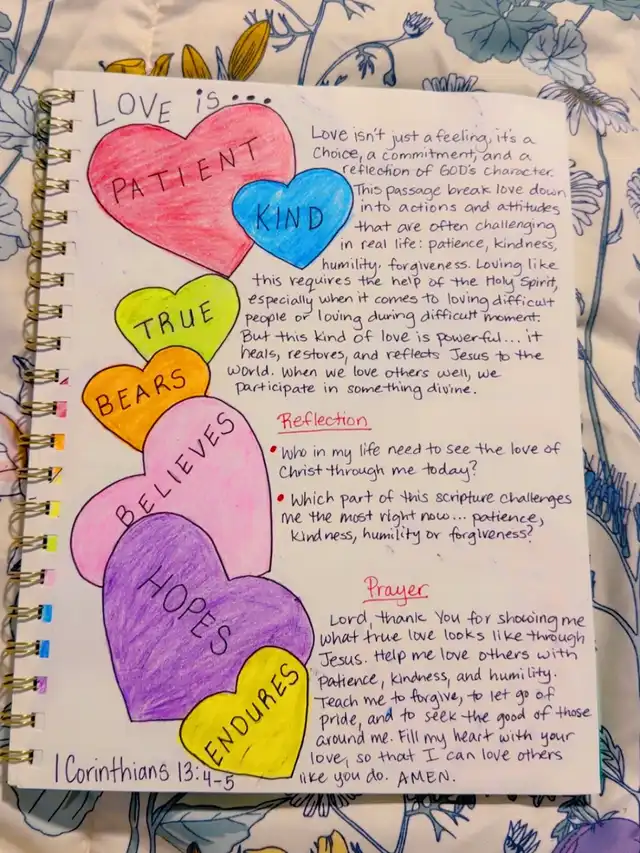 LOVE is...
PATIENT
KIND
TRUE
BEARS
BELIEVES
HOPES
ENDURES
1 Corinthians 13:4-5
Love isn't just a feeling, it's a
choice, a commitment, and a
reflection of GOD's character.
This passage break love down
into actions and attitudes
that are often challenging
in real life: patience, kindness,
humility, forgiveness. Loving like
this requires the help of the Holy Spirit,
especially when it comes to loving difficult
people or loving during difficult moment.
But this kind of love is powerful... it
heals, restores, and reflects Jesus to the
world. When we love others well, we
participate in something divine.
Reflection
• Who in my life need to see the love of
Christ through me today?
• Which part of this scripture challenges
me the most right now... patience,
kindness, humility or forgiveness?
Prayer
Lord, thank You for showing me
what true love looks like through
Jesus. Help me love others with
patience, kindness, and humility.
Teach me to forgive, to let go of
pride, and to seek the good of those
around me. Fill my heart with your
love, so that I can love others
like you do. AMEN.